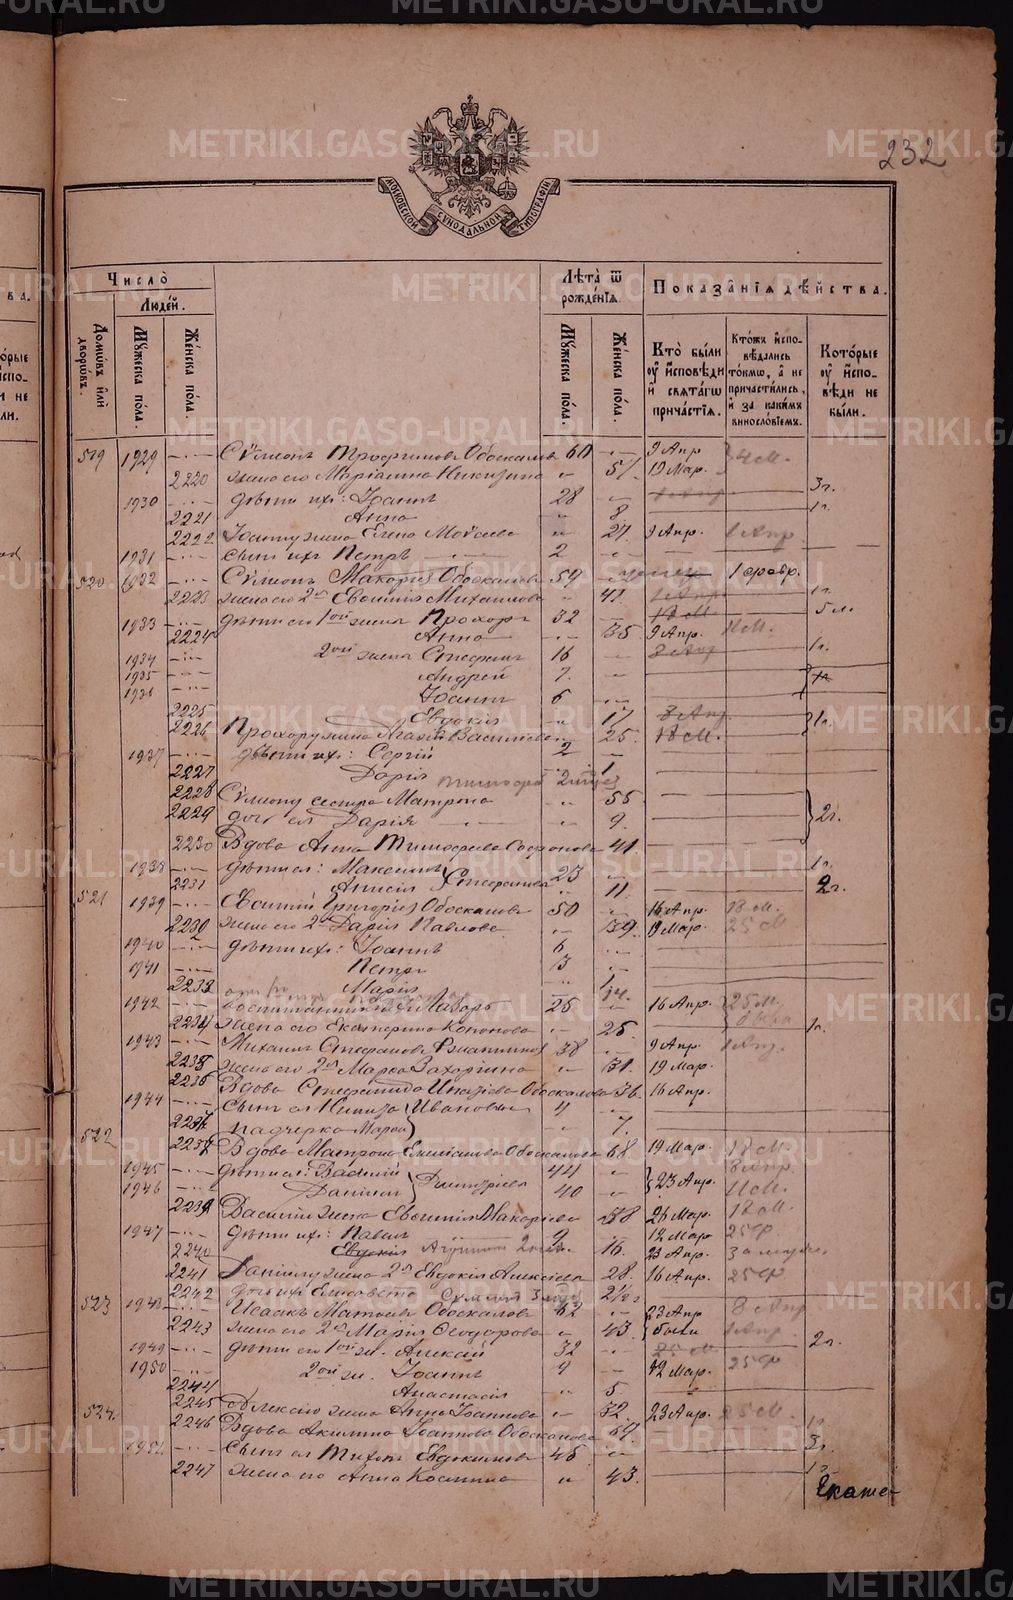 METRIKI.GASO-URAL.RU
232
МОСКОВСКОЙ СУНОДАЛЬНОЙ ТИПОГРАФІИ
Число̀
Людей.
Домѡвъ или дворѡвъ.
Мꙋжеска пола.
Женска пола.
Лѣта ѿ рожденїѧ.
Мꙋжеска пола.
Женска пола.
Показанїѧ дѣйства.
Кто были ꙋ исповѣди и свѧтагѡ причастїѧ.
Ктожъ исповѣдались токмѡ, а не причастились, и за какимъ винословїемъ.
Которые ꙋ исповѣди не были.
519 1929 Сѵмеонъ Трофимовъ Обоскаловъ 60 9 Апр
2220 жена его Маріамна Никитина 51 19 Мар. 4 м.
1930 дѣти ихъ: Іоаннъ 28 3 г.
2221 Анна 8 1 г.
2222 Іоанну жена Елена Моѵсеева 27 9 Апр. 1 Апр.
1931 сынъ ихъ Петръ 2
520 1932 Сѵмеонъ Макаріевъ Обоскаловъ 59 1 февр.
2223 жена его 2я Евѳимія Михаилова 1 Апр 1 г.
1933 дѣти его 1ой жены Прохоръ 32 18 м. 5 м.
2224 Анна 35 9 Апр. 11 м.
1934 2ой жены Стефанъ 16 3 Апр 1 г.
1935 Андрей 7.
1936 Іоаннъ 6
2225 Евдокія 17 3 Апр. 1 г.
2226 Прохору жена Агафія Василиева 25. 18 м.
1937 дѣти ихъ: Сергій 2
2227 Дарія 1
2228 Сѵмеону сестра Матрона 55
2229 дочь ея Дарія 9. 2 г.
2230 Вдова Анна Тимофеева Софронова 41
1938 дѣти ея: Максимъ 23 1 г.
2231 Анисія Стефановы 11 2 г.
521 1939 Евѳимій Григоріевъ Обоскаловъ 50 16 Апр. 18 м.
2232 жена его 2я Дарія Павлова 39 19 Мар. 25 м
1940 дѣти ихъ: Іоаннъ 6
1941 Петръ 3
2233 Марія 1
1942 Лазарь 25 16 Апр. 25 м.
2234 жена его Екатерина Кононова 25 1 г.
1943 Михаилъ Стефановъ 38 9 Апр. 1 Апр.
2235 жена его 2я Марѳа Захарина 31. 19 Мар.
2236 Вдова Стефанида Игнатіева Обоскалова 36. 16 Апр.
1944 сынъ ея Никита Ивановы 4
падчерка Марѳа 7.
522 Вдова Матрона Емиліанова Обоскалова 68 19 Мар. 18 м.
1945 дѣти ея: Василій 44 23 Апр. 3 Апр.
1946 Даніилъ Димитріевы 40 11 м.
2239 Василію жена Евѳимія Макаріева 38 26 Мар. 18 м.
1947 дѣти ихъ: Павелъ 9 12 Мар. 25 Ф
2240 Евдокія 16. 23 Апр. замуж.
2241 Даніилу жена 2я Евдокія Алексіева 28. 16 Апр. 25 Ф
2242 дочь ихъ Елисавета
523 1948 Исаакъ Матѳіевъ Обоскаловъ 62 23 Апр 8 Апр
2243 жена его 2я Марія Ѳеодорова 43 были 1 Апр.
1949 дѣти его 1ой ж. Алексій 32 25 м 2 г.
1950 2ой ж. Іоаннъ 4 12 Мар. 25 Ф
2244 Анастасія 5.
2245 Алексію жена Анна Іоаннова 32. 23 Апр. 25 м
524. 2246 Вдова Акилина Іоаннова Обоскалова 69 1 г.
1951 сынъ ея Тихонъ Евдокимовъ 45 3 г.
2247 жена его Анна Космина 43. 1 г.
Екате-